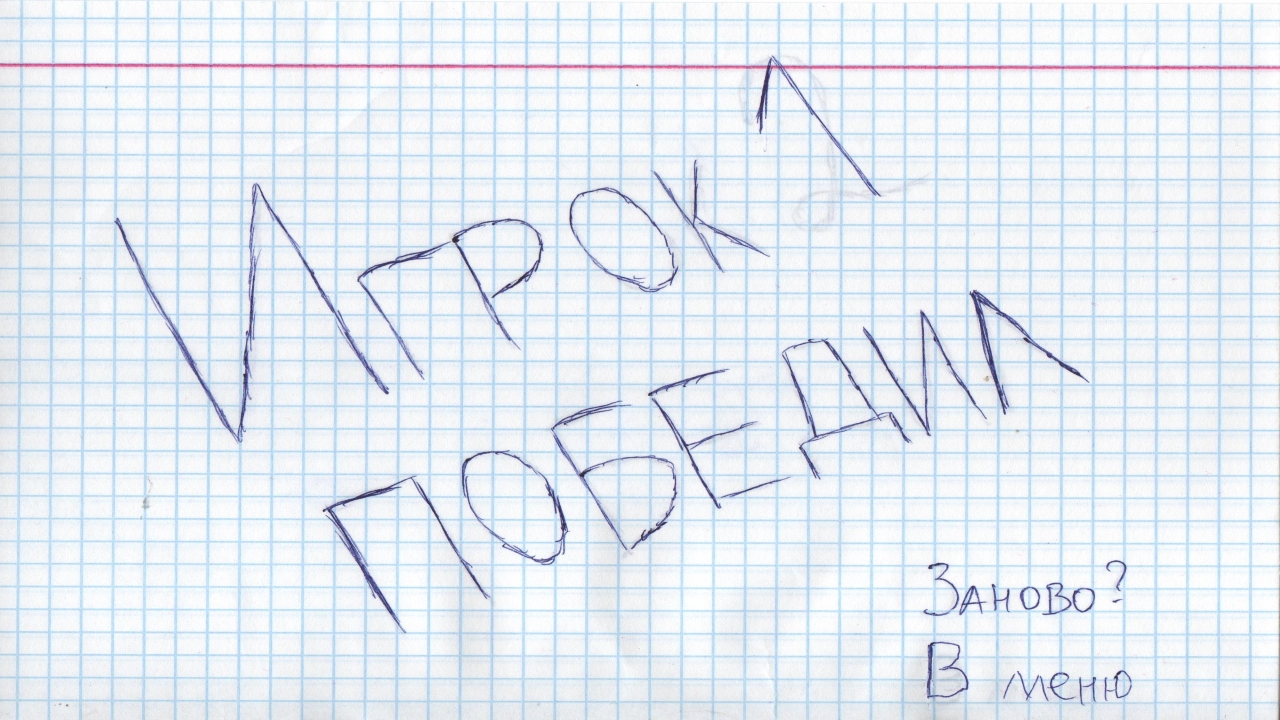 Игрок 1
ПОБЕДИЛ
Заново?
В меню